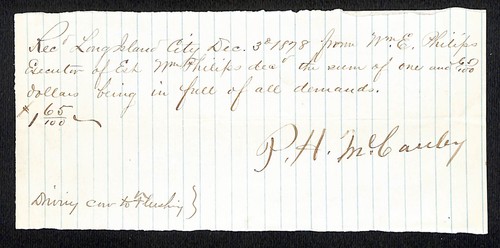 Rec'd Long Island City Dec. 3d 1878 from Wm. E. Philips
Executor of Est Wm Philips dec'd the sum of one and 65/100
dollars being in full of all demands.
$1 65/100
P. H. McCauley
Driving cow to Flushing }